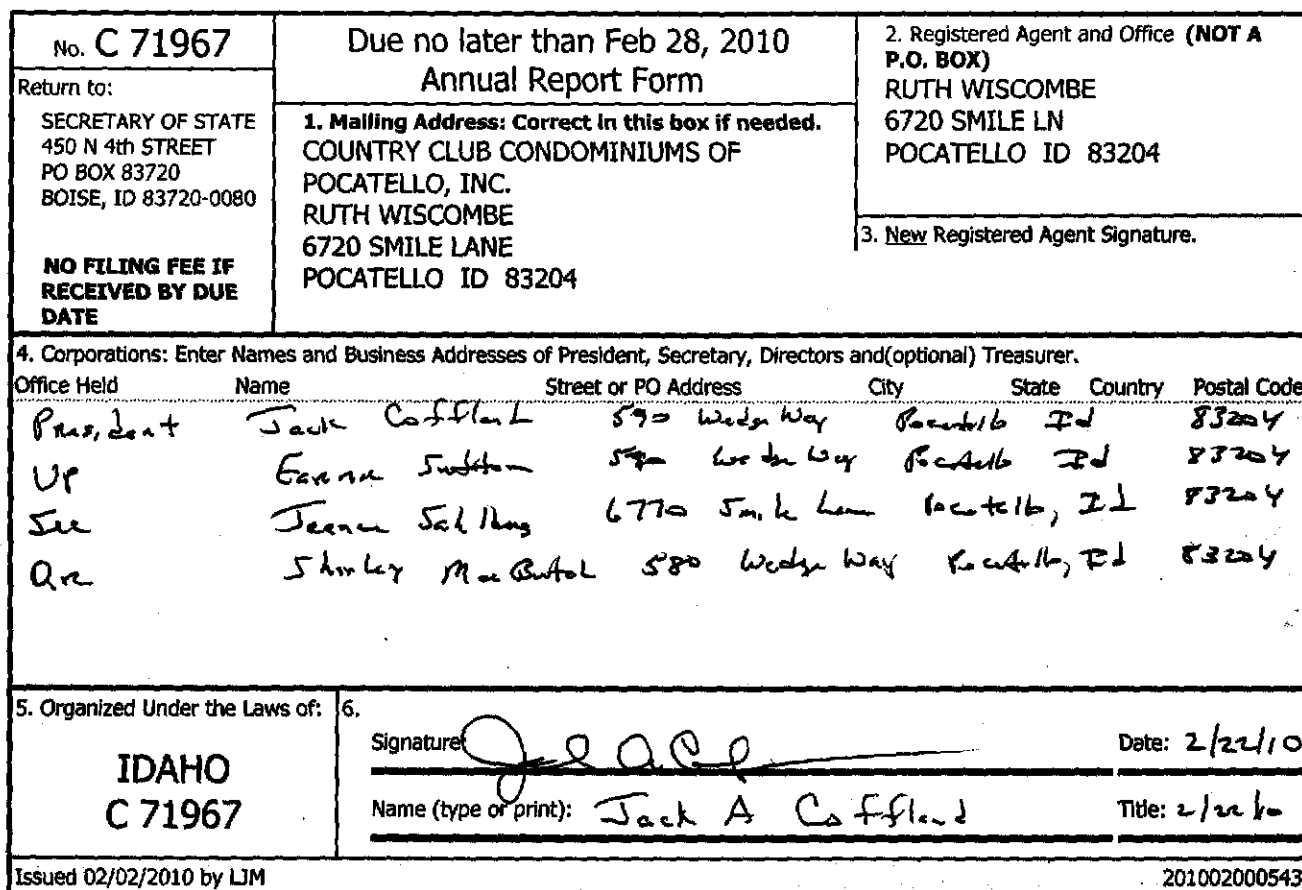 No. C 71967
Return to:
SECRETARY OF STATE
450 N 4th STREET
PO BOX 83720
BOISE, ID 83720-0080
NO FILING FEE IF
RECEIVED BY DUE
DATE
Due no later than Feb 28, 2010
Annual Report Form
1. Mailing Address: Correct in this box if needed.
COUNTRY CLUB CONDOMINIUMS OF
POCATELLO, INC.
RUTH WISCOMBE
6720 SMILE LANE
POCATELLO ID 83204
2. Registered Agent and Office (NOT A
P.O. BOX)
RUTH WISCOMBE
6720 SMILE LN
POCATELLO ID 83204
3. New Registered Agent Signature.
4. Corporations: Enter Names and Business Addresses of President, Secretary, Directors and(optional) Treasurer.
Office Held Name Street or PO Address City State Country Postal Code
President Jack Coffland 590 Wedge Way Pocatello Id 83204
VP 590 Wedge Way Pocatello Id 83204
Sec 6770 Smile Lane Pocatello, Id 83204
Shirley 580 Wedge Way Pocatello, Id 83204
5. Organized Under the Laws of:
IDAHO
C 71967
6.
Signature Date: 2/22/10
Name (type or print): Jack A Coffland Title: 2/22/10
Issued 02/02/2010 by LJM 201002000543